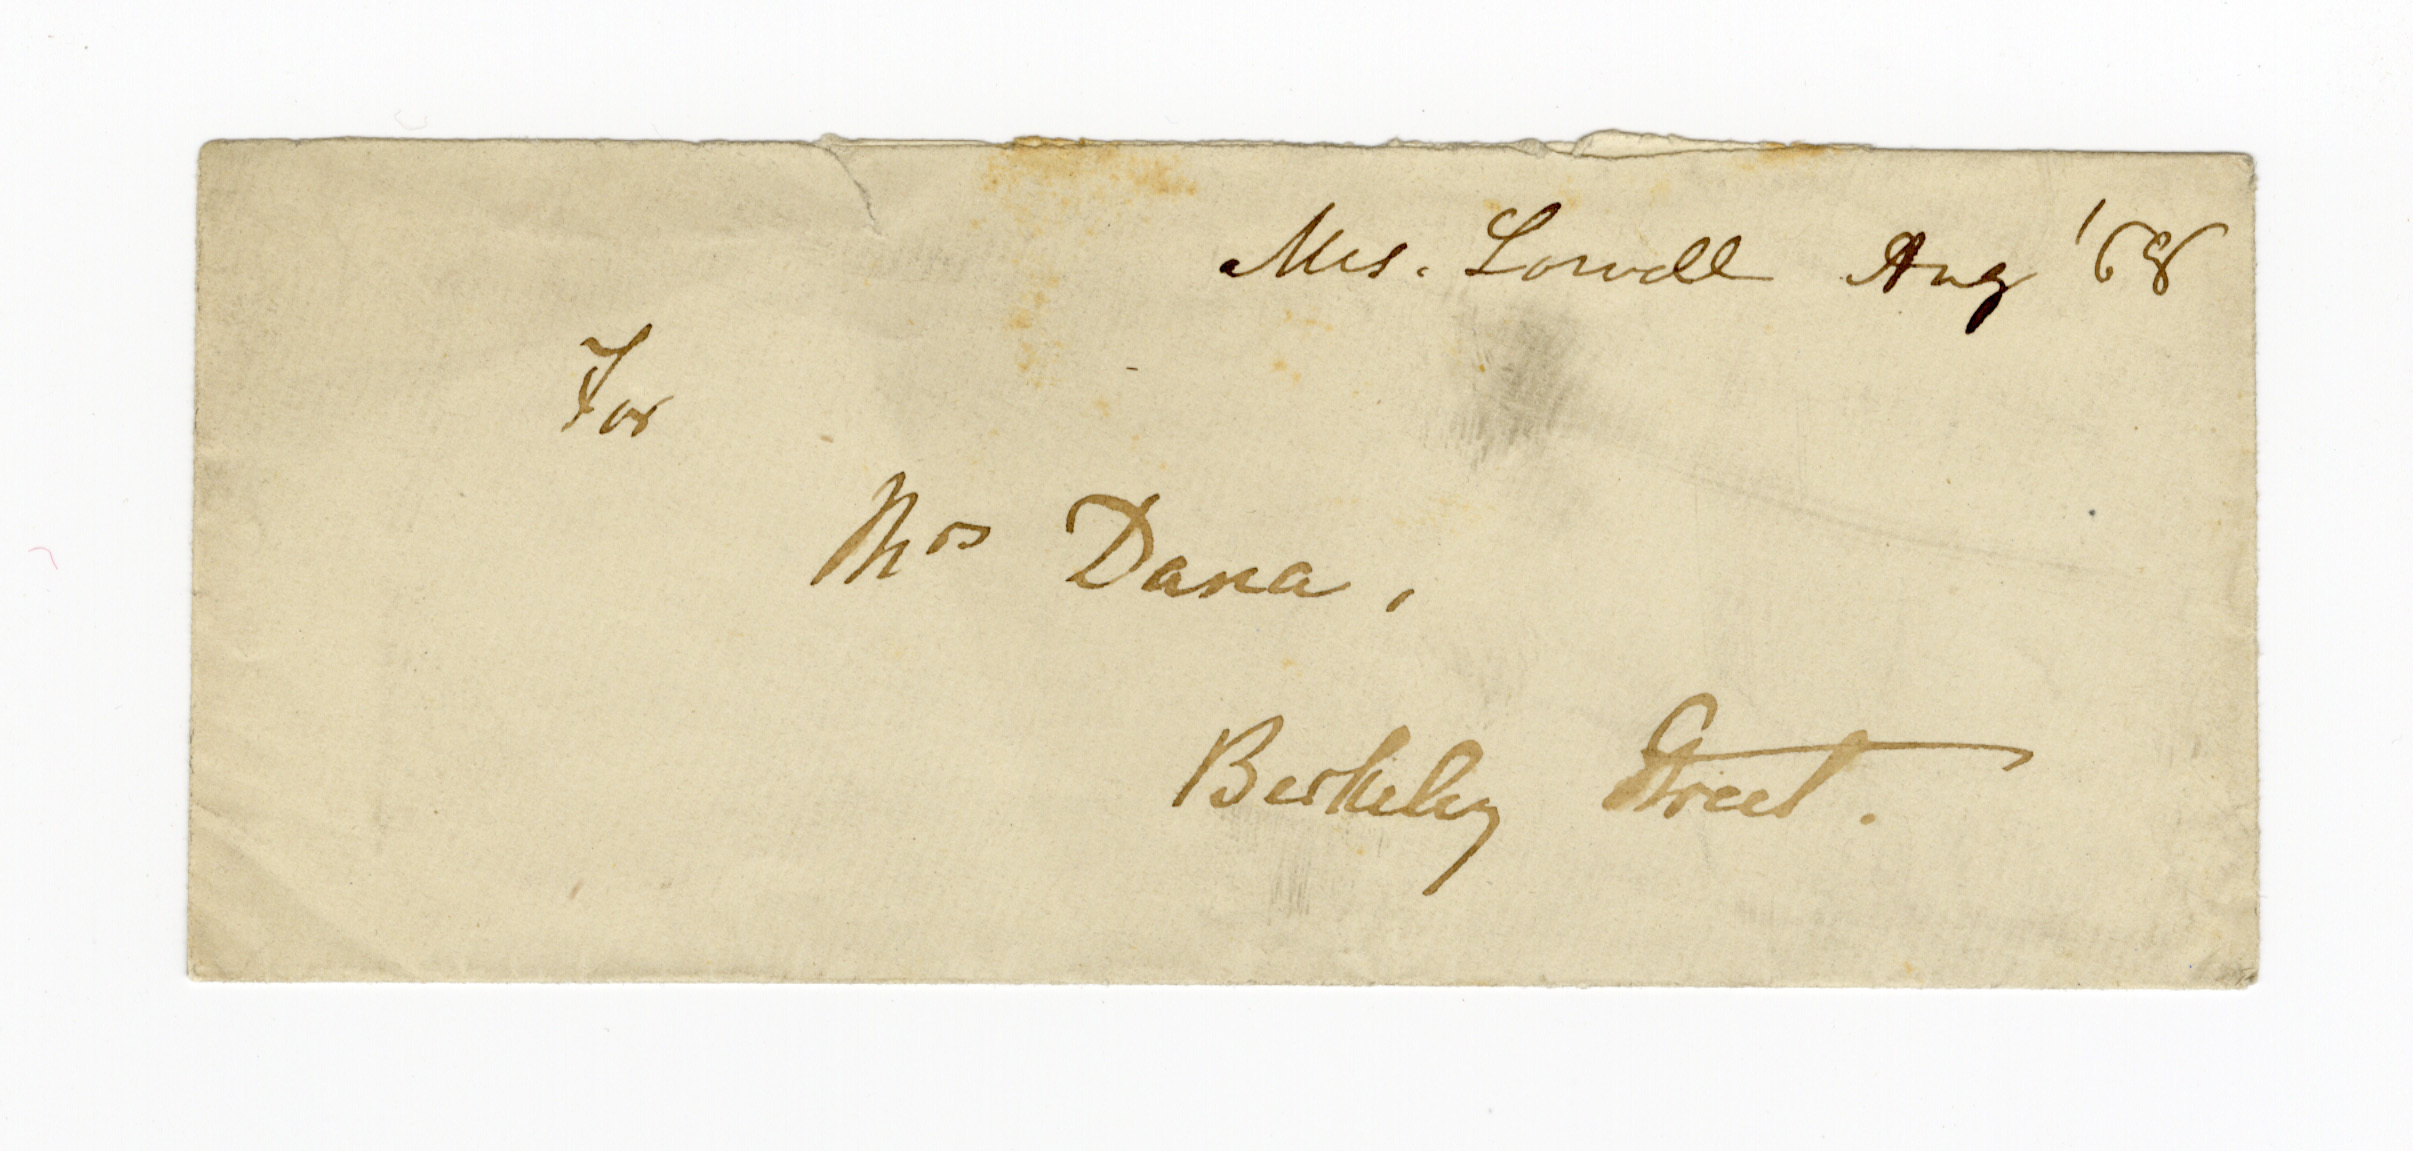 Mrs. Lowell Aug '68
For
Mrs Dana,
Berkeley Street.